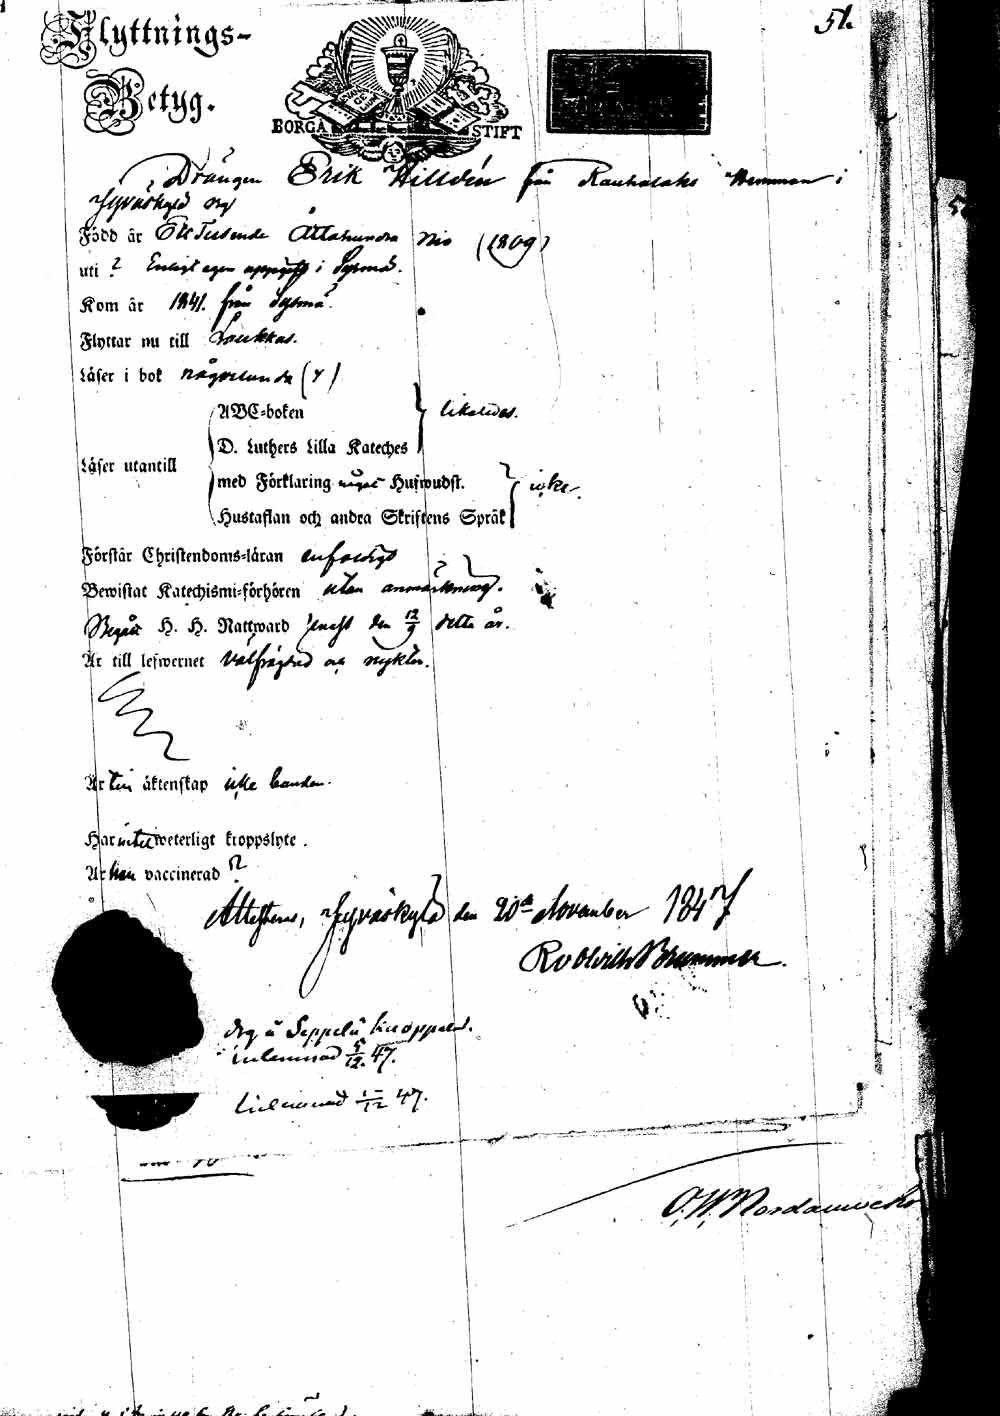 51.
Flyttnings-
Betyg.
BORGÅ STIFT
Drängen Erik Willdén från Rauhalaks Hemman i
Jyväskylä
Född år Ett Tusende Åttahundra Nio (1809)
uti ? Enligt egen uppgift i Sysmä.
Kom år 1841. från Sysmä.
Flyttar nu till Laukkas.
Läser i bok någorlunda (y)
ABC-boken
D. Luthers Lilla Kateches
likaledes.
Läser utantill
med Förklaring något Hufwudst.
Hustaflan och andra Skriftens Språk
icke.
Förstår Christendoms-läran enfaldigt
Bewistat Katechismi-förhören utan anmärkning.
Begått H. H. Nattward senast den 12/9 detta år.
Är till lefwernet välfrägdad och nykter.
Är till äktenskap icke bunden.
Har intet weterligt kroppslyte.
Är han vaccinerad ?
Attesteras, Jyväskylä den 20de November 1847
Brummer.
å Seppelä
inlemnad 5/12 47.
47.
O. W.